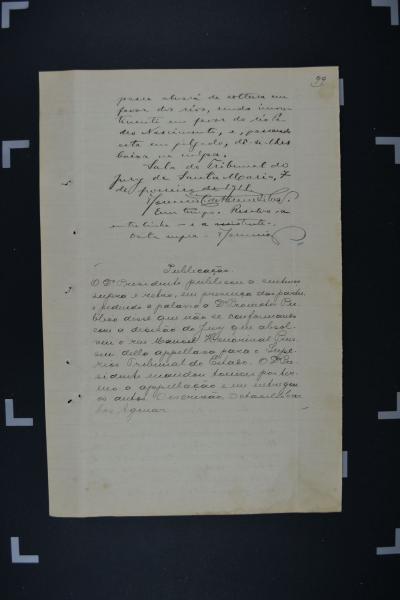 99
passe alvará de soltura em
favor dos réos, sendo incon
tinente em favor do réo Pe
dro Nascimento, e, passando
esta em julgado, dê-se-lhes
baixa na culpa.
Sala do Tribunal do
Jury de Santa Maria, 7
de fevereiro de 1911
Em tempo. Resalvo a
entrelinha — e a
Data supra.
Publicação.
O Dr. Presidente publicou a sentença
supra e retro, em presença das partes,
e pedindo a palavra o Dr. Promotor Pu-
blico disse que não se conformando
com a decisão do Jury que absol-
veu o reo Manoel
della appellava para o Supe-
rior Tribunal do Estado. O Dr. Pre-
sidente mandou tomar por ter-
mo a appellação e
os autos. O escrivão,
Aguiar